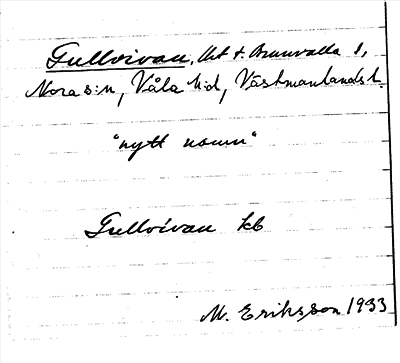 Gullvivan, lht t. Brunvalla 1,
Nora s:n, Våla hd, Västmanlands l.
"nytt namn"
Gullvivan kb
M. Eriksson 1933